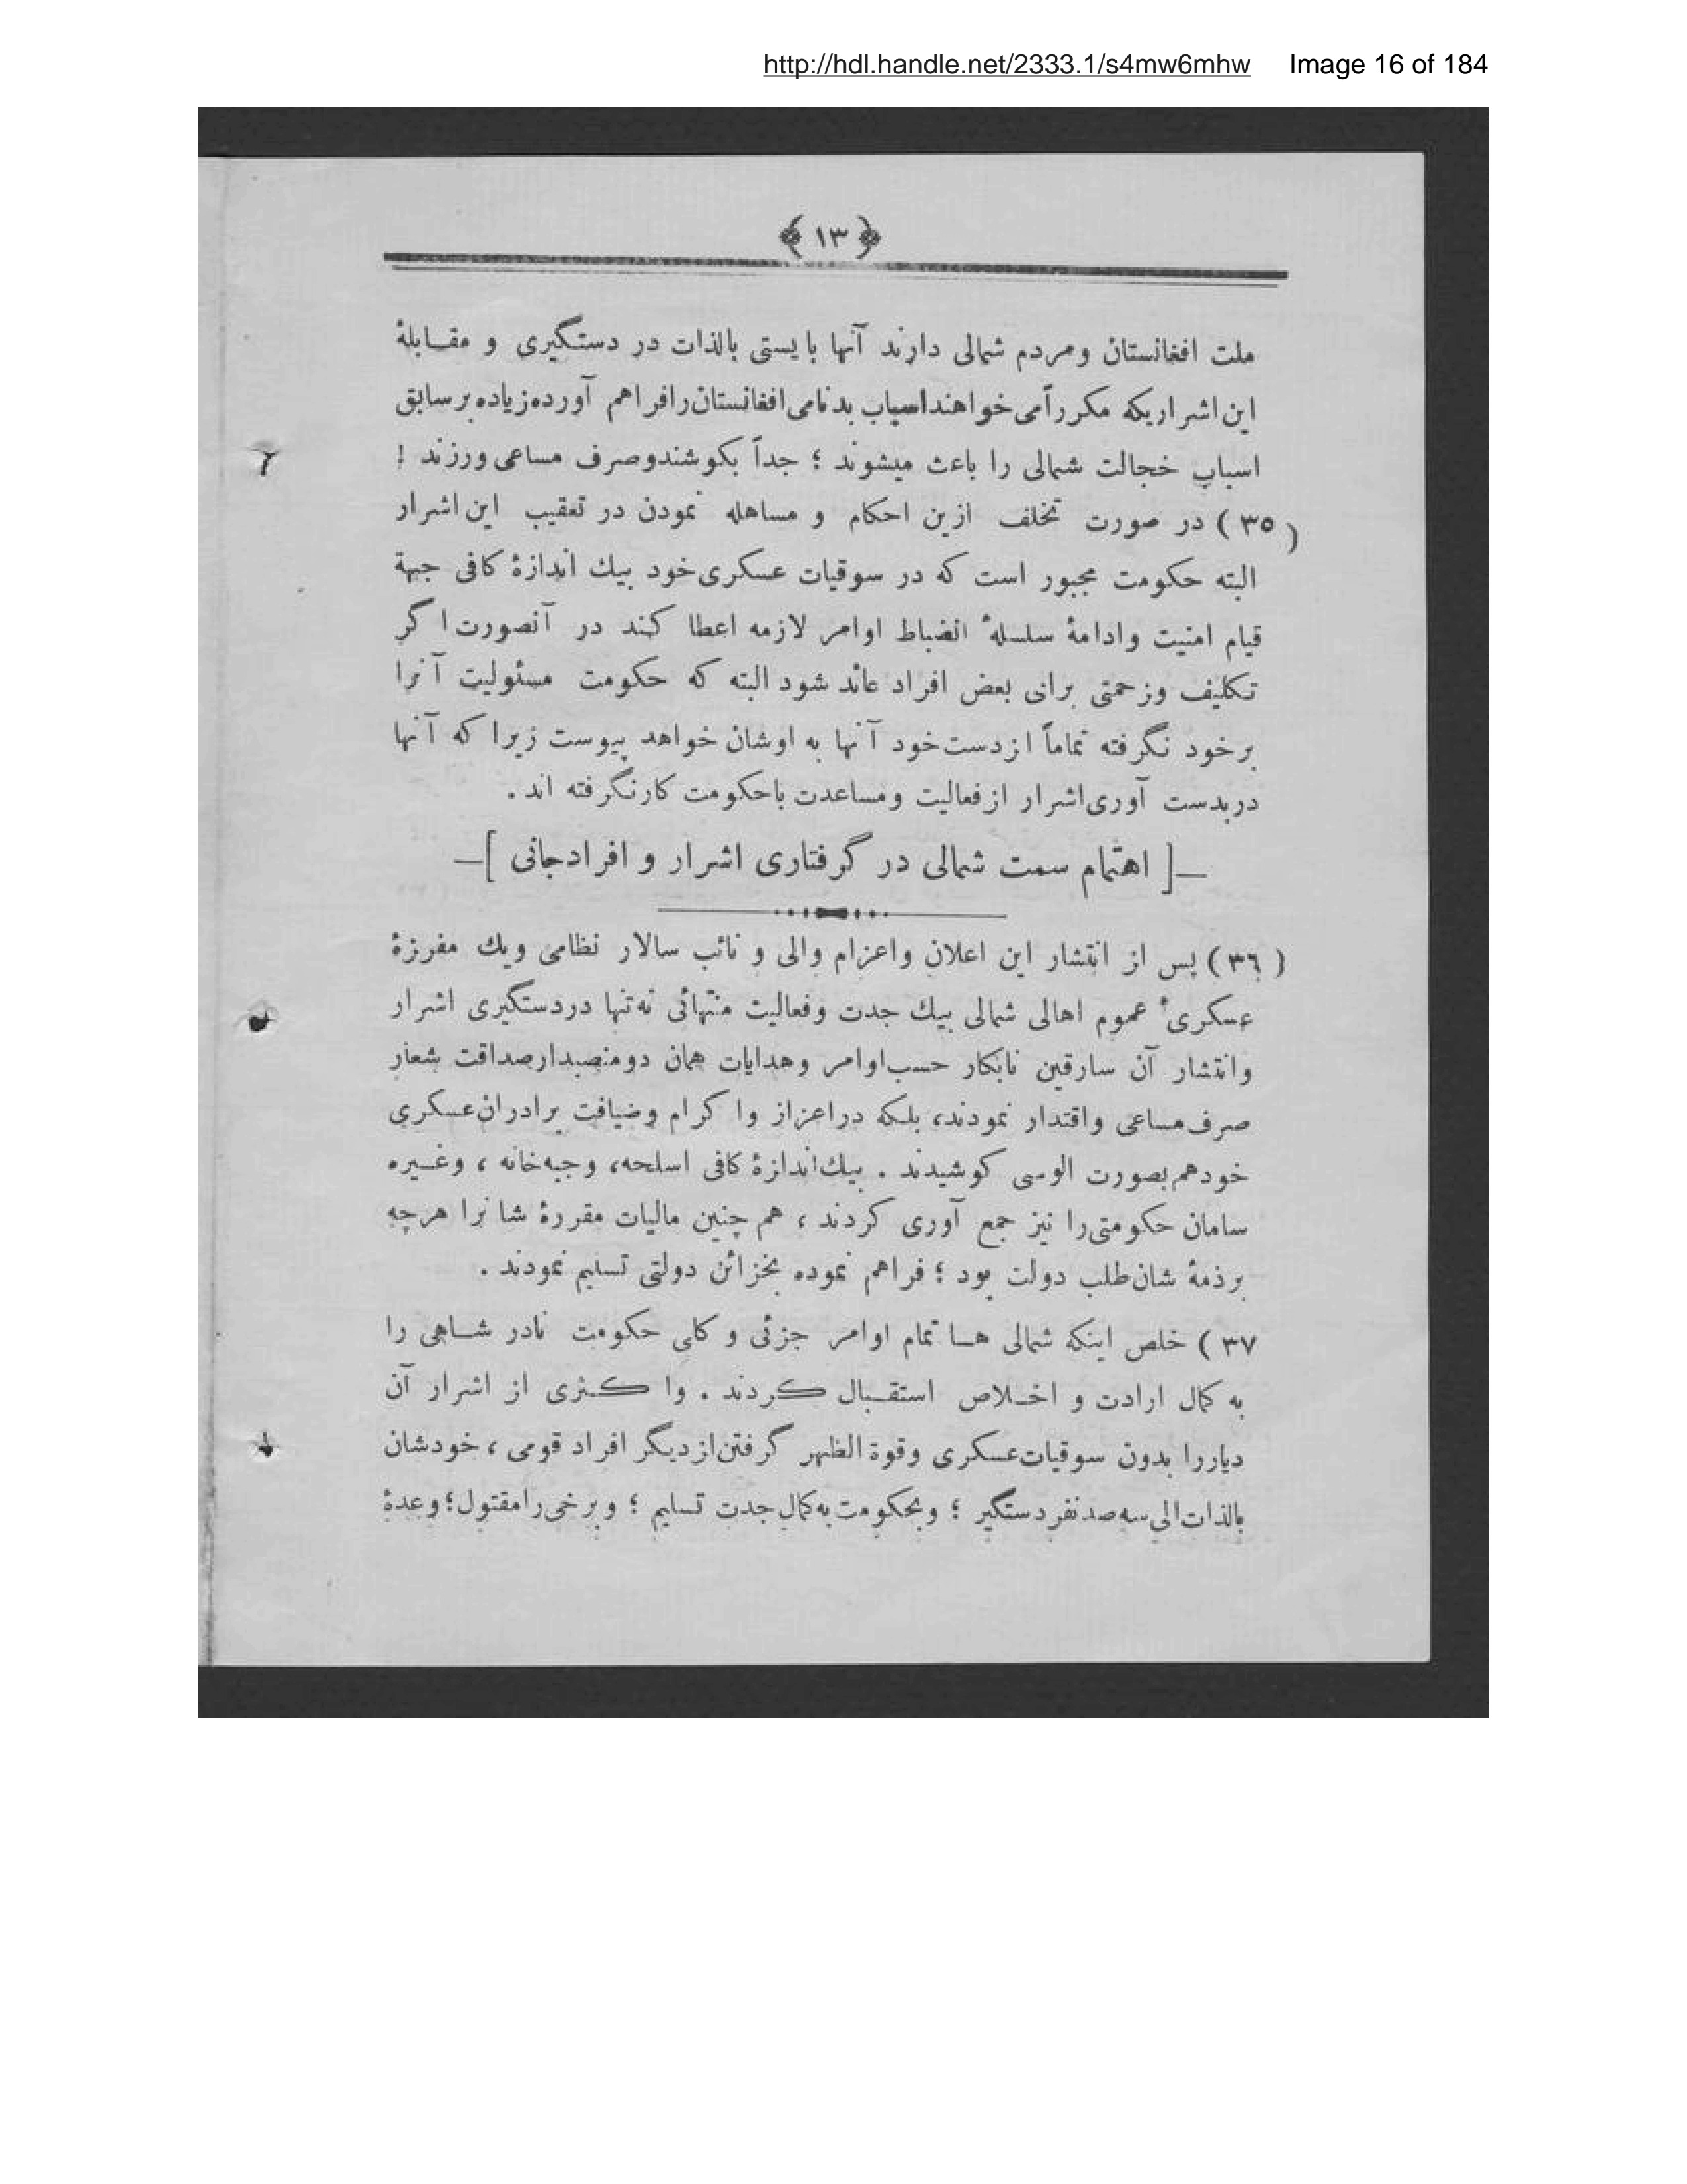 http://hdl.handle.net/2333.1/s4mw6mhw Image 16 of 184
﴿ ١٣ ﴾
ملت افغانستان ومردم شمالی دارند آنها بایستی بالذات در دستگیری و مقابلهٔ
این اشراریکه مکرراً می خواهند اسباب بدنامی افغانستان را فراهم آورده زیاده بر سابق
اسباب خجالت شمالی را باعث میشوند ؛ جداً بکوشند و صرف مساعی ورزند !
( ٣٥ ) در صورت تخلف ازین احکام و مساهله نمودن در تعقیب این اشرار
البته حکومت مجبور است که در سوقیات عسکری خود بیك اندازهٔ کافی جبهة
قیام امنیت وادامهٔ سلسلهٔ انضباط اوامر لازمه اعطا کند در آنصورت اگر
تکلیف وزحمتی برای بعض افراد عائد شود البته که حکومت مسئولیت آنرا
برخود نگرفته تماماً از دست خود آنها به اوشان خواهد پیوست زیرا که آنها
دربدست آوری اشرار از فعالیت ومساعدت باحکومت کار نگرفته اند .
—[ اهتمام سمت شمالی در گرفتاری اشرار و افراد جانی ]—
( ٣٦ ) پس از انتشار این اعلان واعزام والی و نائب سالار نظامی ویك مفرزهٔ
عسکریٔ عموم اهالی شمالی بیك جدت وفعالیت منتهائی نه تنها در دستگیری اشرار
وانتشار آن سارقین نابکار حسب اوامر وهدایات همان دو منصبدار صداقت شعار
صرف مساعی واقتدار نمودند، بلکه در اعزاز واکرام وضیافت برادران عسکری
خود هم بصورت الوسی کوشیدند . بیك اندازهٔ کافی اسلحه، وجبه خانه ، وغیره
سامان حکومتی را نیز جمع آوری کردند ، هم چنین مالیات مقررهٔ شانرا هرچه
برذمهٔ شان طلب دولت بود ؛ فراهم نموده بخزائن دولتی تسلیم نمودند .
٣٧ ) خلص اینکه شمالی ها تمام اوامر جزئی و کلی حکومت نادر شاهی را
به کمال ارادت و اخلاص استقبال کردند . واکثری از اشرار آن
دیار را بدون سوقیات عسکری وقوة الظهر گرفتن از دیگر افراد قومی ، خودشان
بالذات الی سه صد نفر دستگیر ؛ وبحکومت به کمال جدت تسلیم ؛ وبرخی را مقتول ؛ وعدهٔ